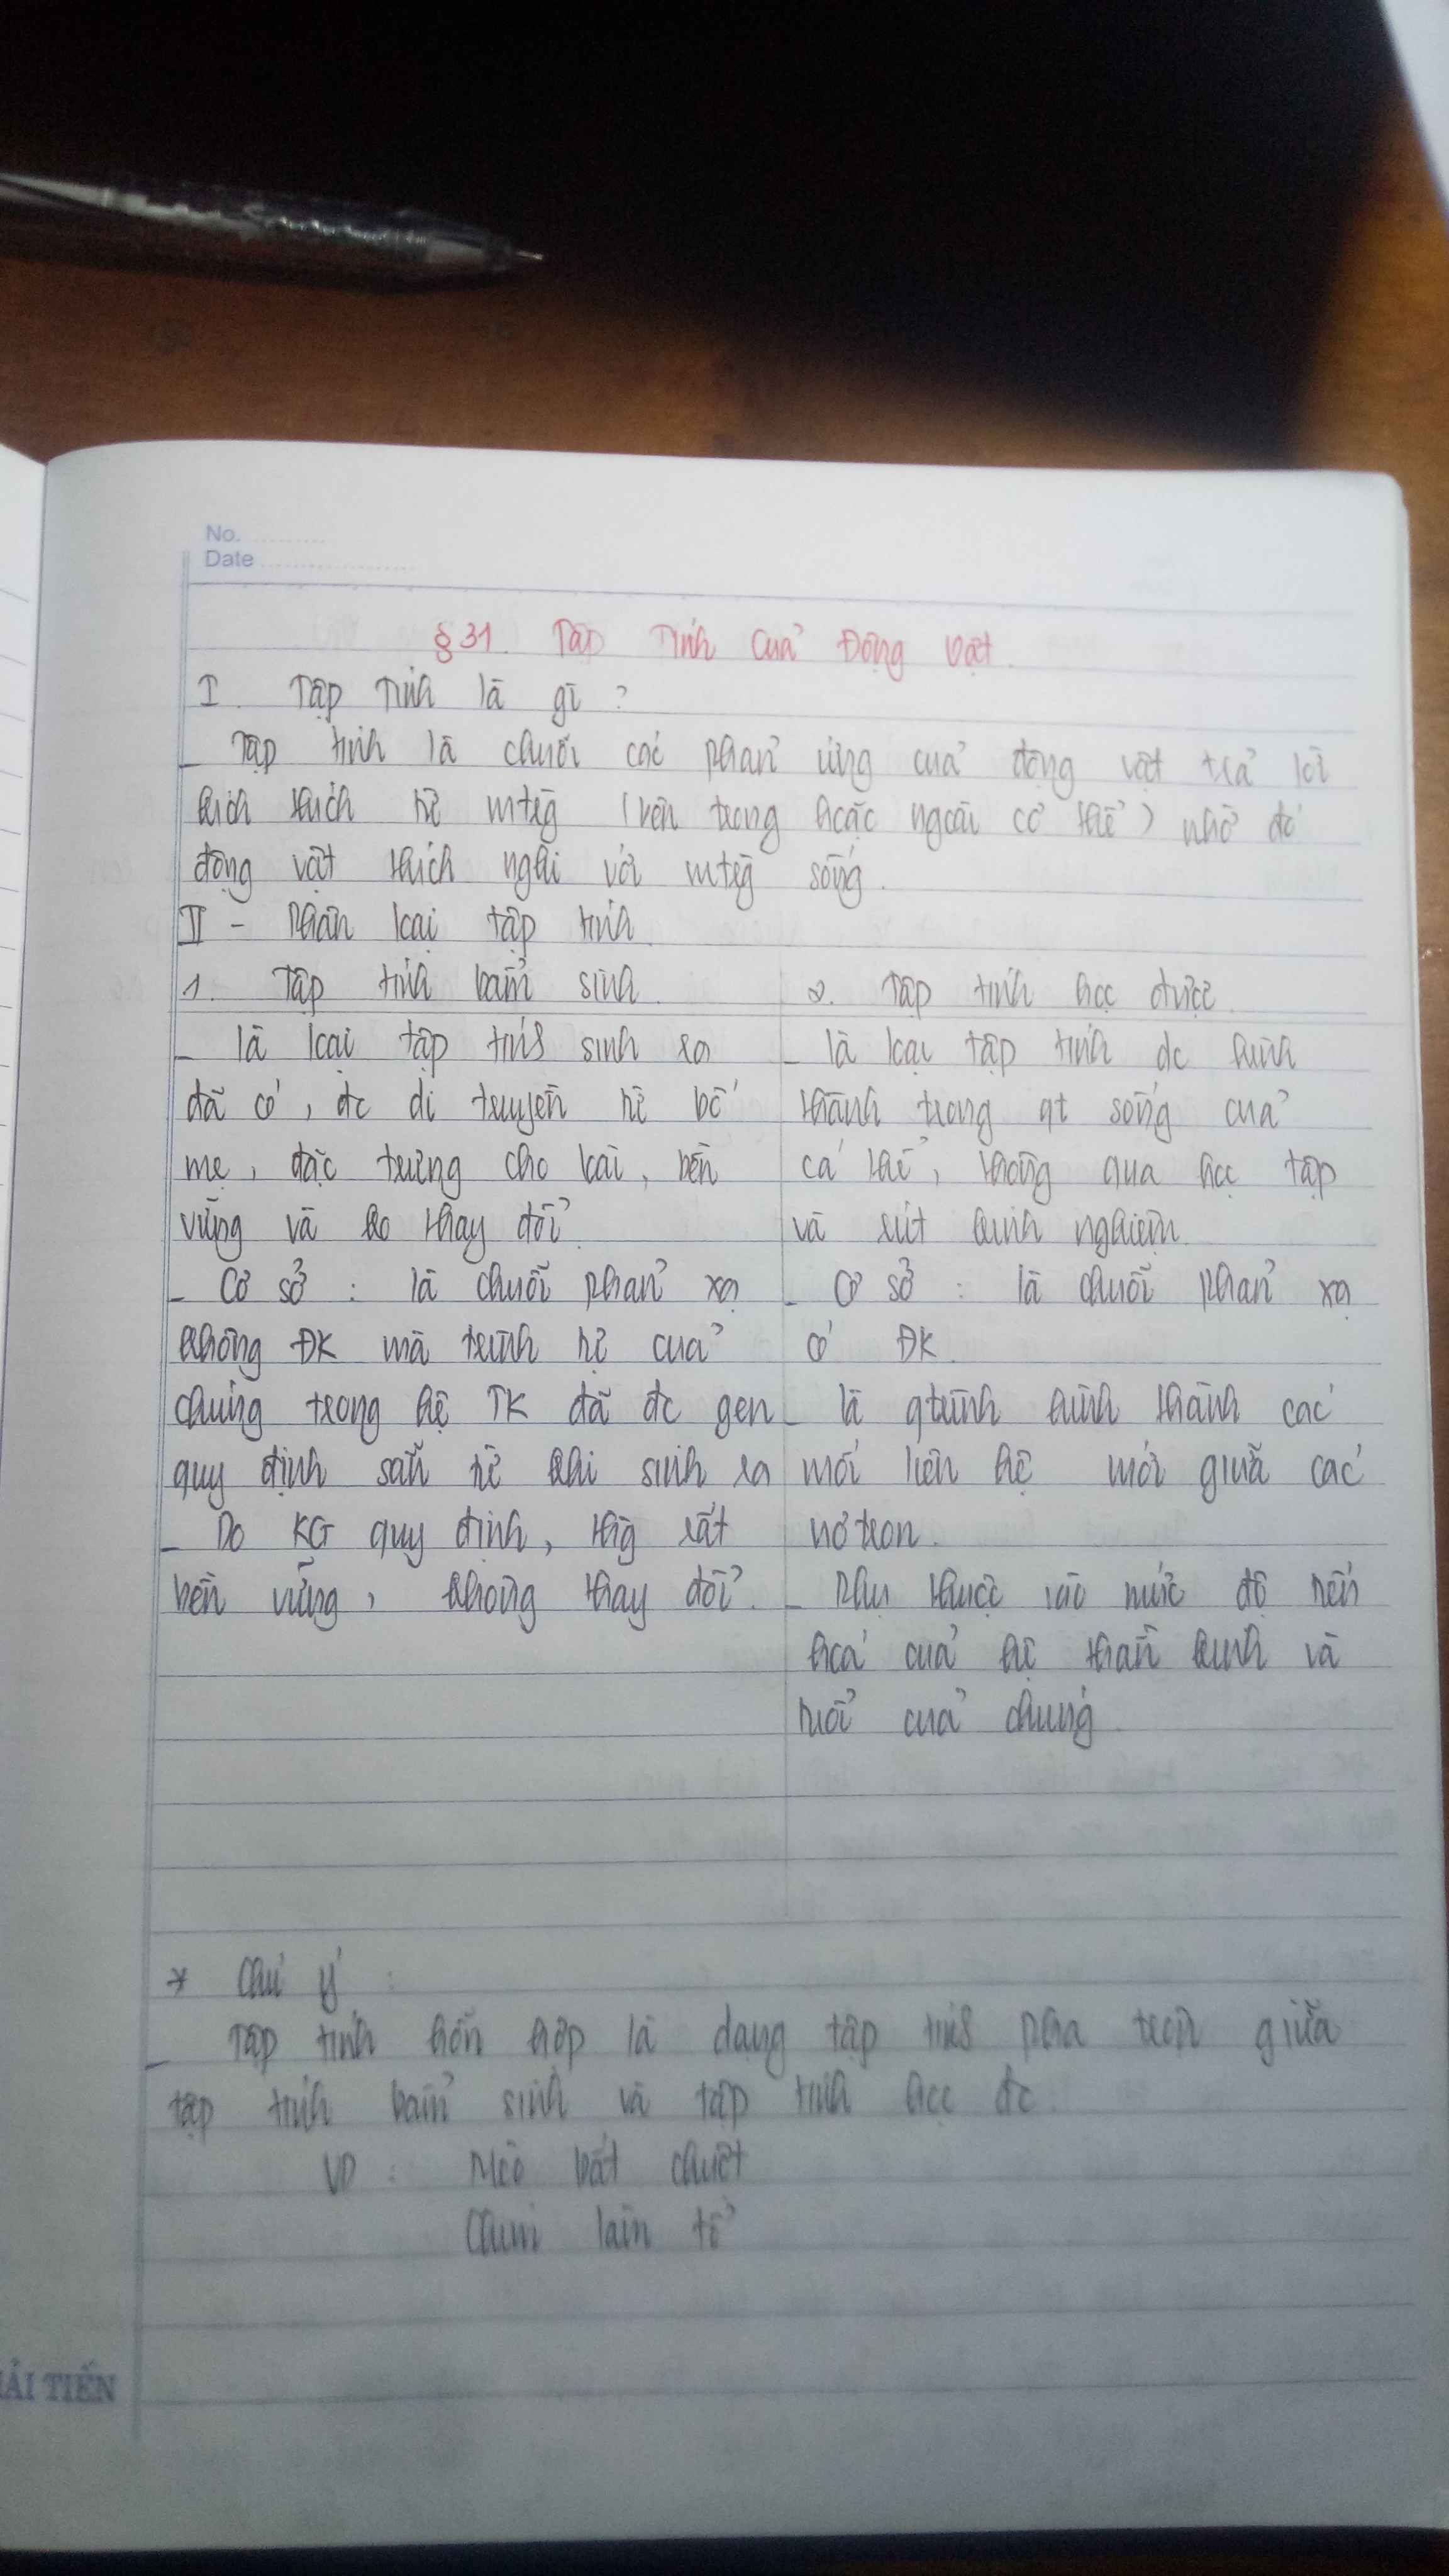 No.
Date
§ 31. Tập Tính Của Động Vật.
I. Tập tính là gì ?
- Tập tính là chuỗi các phản ứng của động vật trả lời
kích thích từ mtrg (bên trong hoặc ngoài cơ thể) nhờ đó
động vật thích nghi với mtrg sống.
II - Phân loại tập tính
1. Tập tính bẩm sinh.
- là loại tập tính sinh ra
đã có, đc di truyền từ bố
mẹ, đặc trưng cho loài, bền
vững và ko thay đổi.
- Cơ sở : là chuỗi phản xạ
không ĐK mà trình tự của
chúng trong hệ TK đã đc gen
quy định sẵn từ khi sinh ra
- Do KG quy định, thg rất
bền vững, không thay đổi.
2. Tập tính học được.
- là loại tập tính đc hình
thành trong qt sống của
cá thể, thông qua học tập
và rút kinh nghiệm.
- Cơ sở : là chuỗi phản xạ
có ĐK.
- là qtrình hình thành các
mối liên hệ mới giữa các
nơtron.
- Phụ thuộc vào mức độ tiến
hoá của hệ thần kinh và
tuổi của chúng.
* Chú ý :
- Tập tính hỗn hợp là dạng tập tính pha trộn giữa
tập tính bẩm sinh và tập tính học đc.
VD : Mèo bắt chuột
Chim làm tổ
ẢI TIẾN